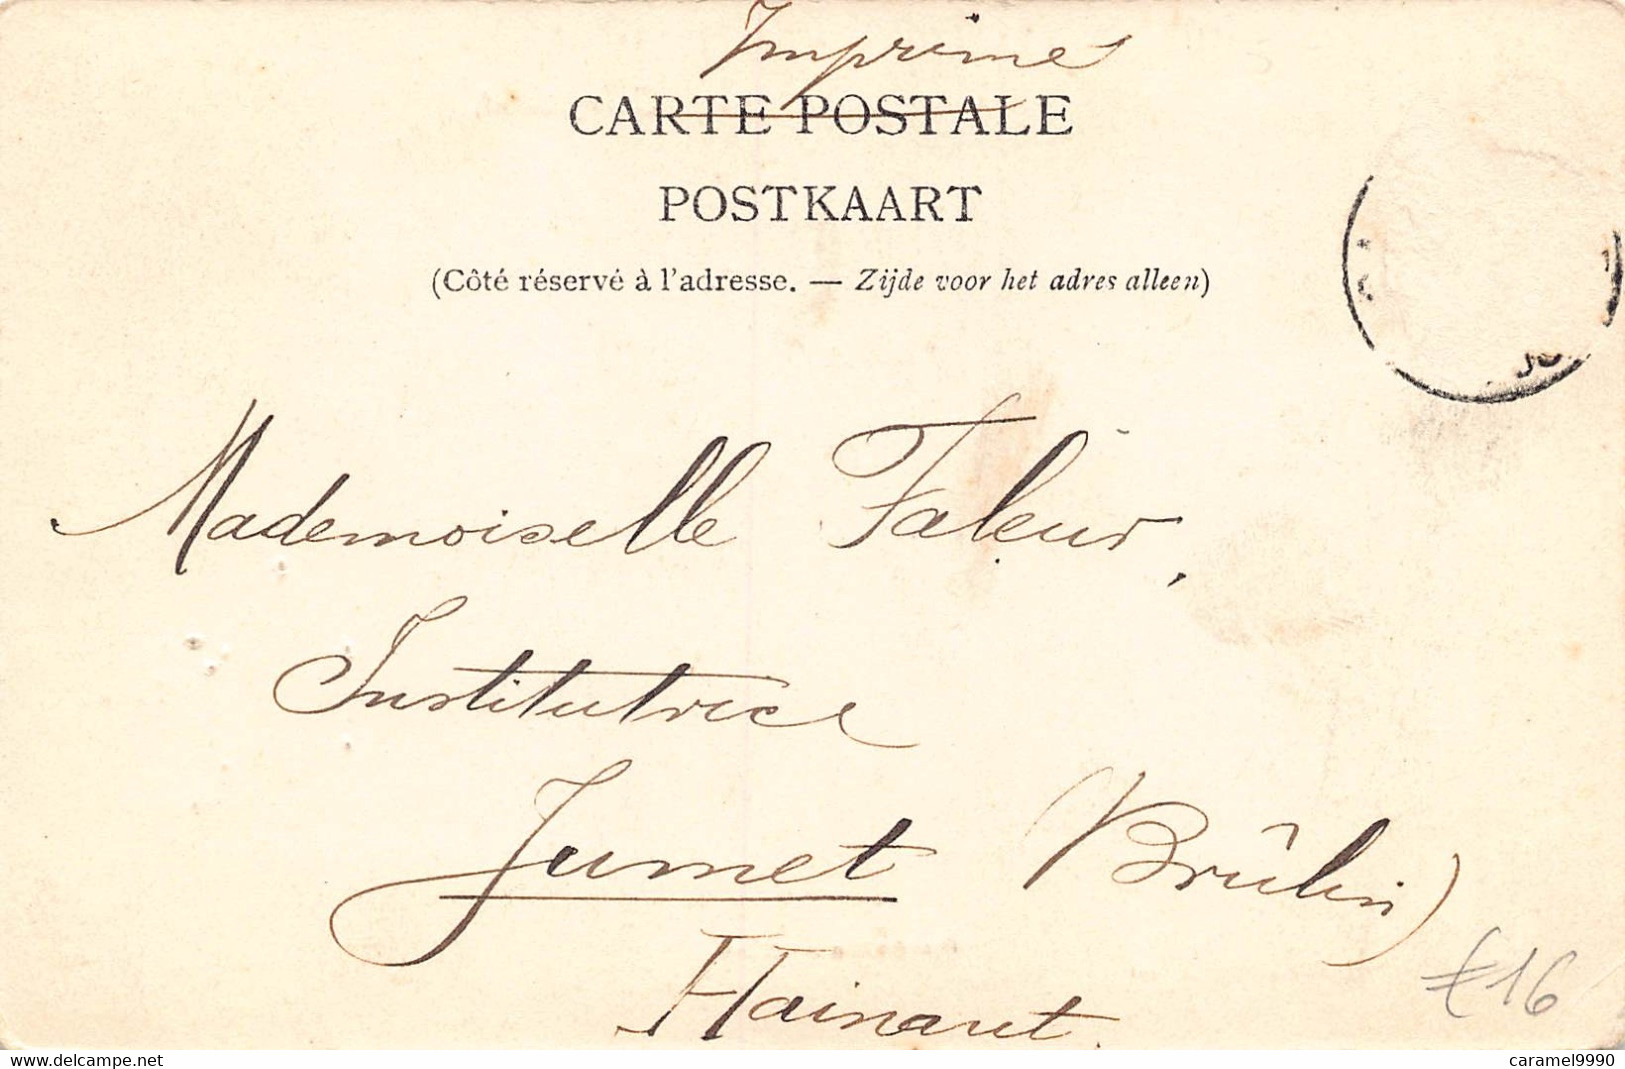 Imprimé
CARTE POSTALE
POSTKAART
(Côté réservé à l'adresse. — Zijde voor het adres alleen)
Mademoiselle Faleur,
Institutrice
Jumet (Brûlin)
Hainaut.
€16
www.delcampe.net
caramel9990